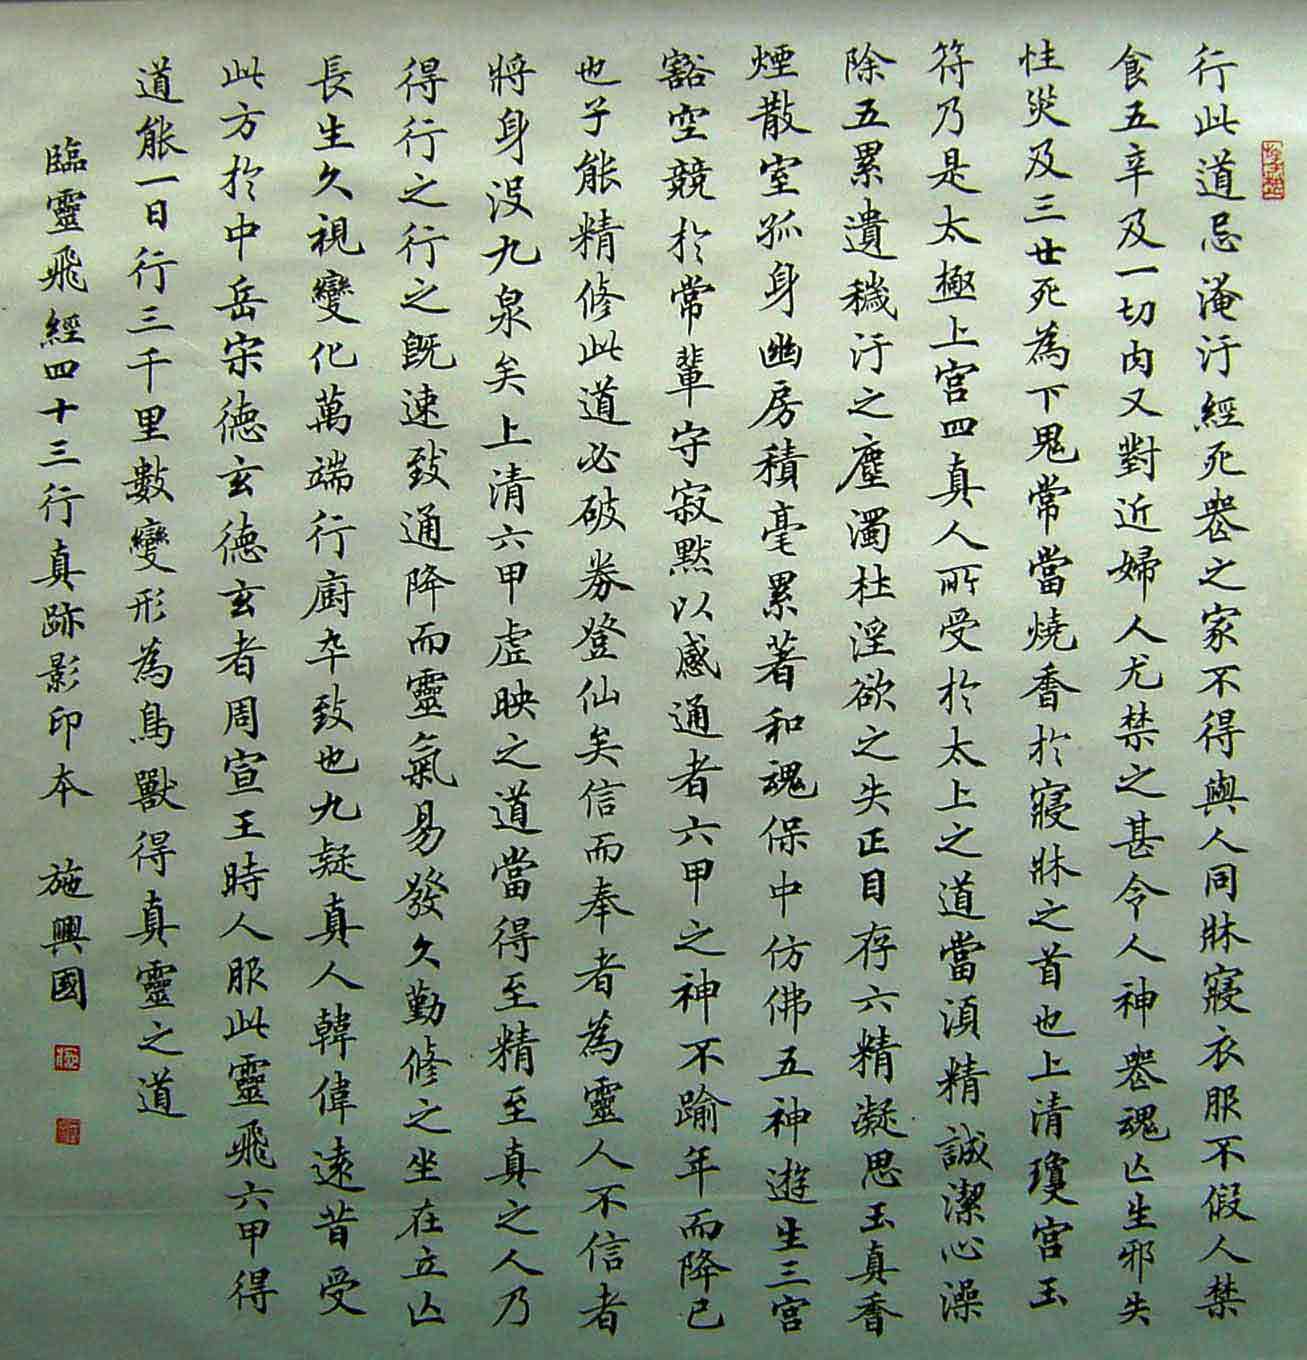 行此道忌淹汙經死喪之家不得與人同牀寢衣服不假人禁
食五辛及一切肉又對近婦人尤禁之甚令人神喪魂亡生邪失
性災及三世死為下鬼常當燒香於寢牀之首也上清瓊宮玉
符乃是太極上宮四真人所受於太上之道當須精誠潔心澡
除五累遺穢汙之塵濁杜淫欲之失正目存六精凝思玉真香
煙散室孤身幽房積毫累著和魂保中仿佛五神遊生三宮
豁空競於常輩守寂默以感通者六甲之神不踰年而降已
也子能精修此道必破券登仙矣信而奉者為靈人不信者
將身沒九泉矣上清六甲虛映之道當得至精至真之人乃
得行之行之既速致通降而靈氣易發久勤修之坐在立亡
長生久視變化萬端行廚卒致也九疑真人韓偉遠昔受
此方於中岳宋德玄德玄者周宣王時人服此靈飛六甲得
道能一日行三千里數變形為鳥獸得真靈之道
臨靈飛經四十三行真跡影印本 施興國